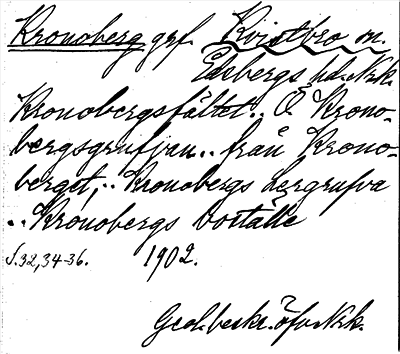 Kronoberg grf. Kvistbro sn.
Edsbergs hd. Nrk.
Kronobergsfältet.. Ö. Krono-
bergsgrufvan.. från Krono-
berget,.. Kronobergs Lergrufva
.. Kronobergs Vortälle
S. 32, 34-36. 1902.
Geol. beskr. öfv. Nrk.